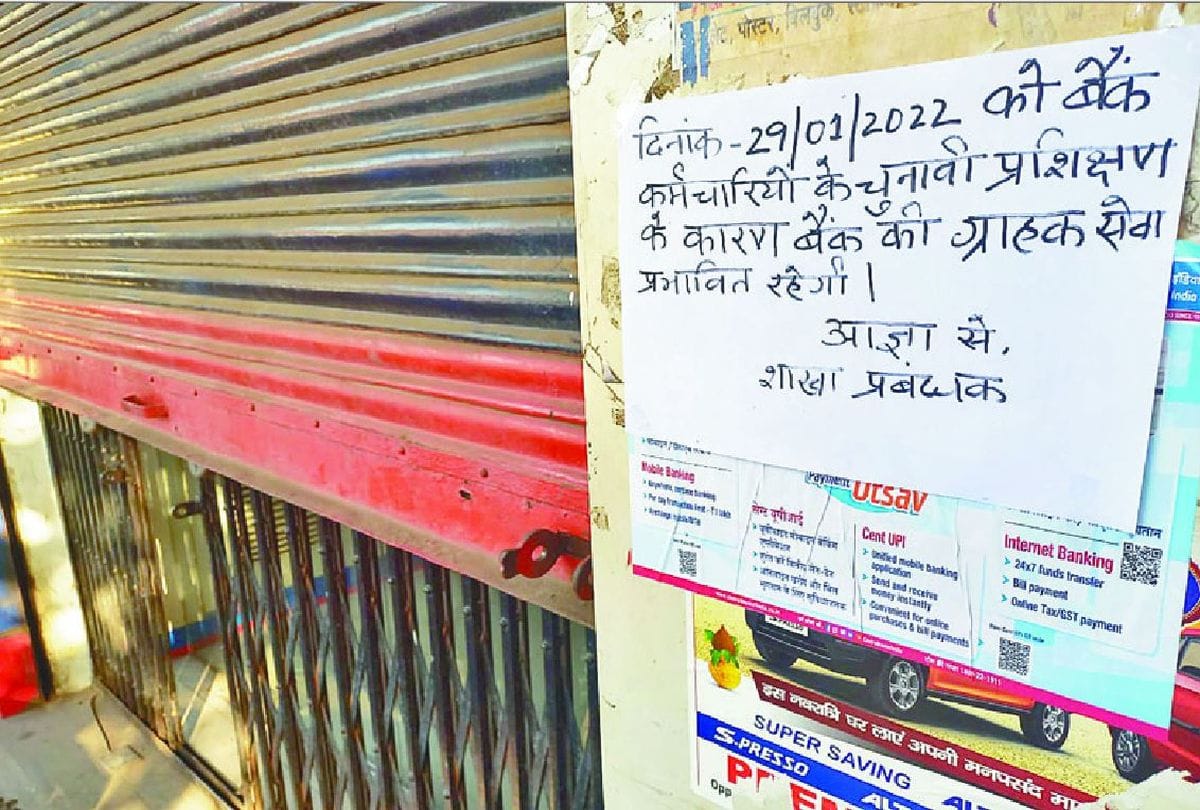 पोस्टर,
दिनांक - 29/01/2022 को बैंक
कर्मचारियों के चुनावी प्रशिक्षण
के कारण बैंक की ग्राहक सेवा
प्रभावित रहेगी।
आज्ञा से,
शाखा प्रबंधक
Mobile Banking
Payment
Utsav
Cent UPI
Unified mobile banking
application
Send and receive
money instantly
Convenient for online
purchases & bill payments
Internet Banking
24x7 funds transfer
Bill payment
Online Tax/GST payment
इस नवरात्रि घर लाएं अपनी मनपसंद
SUPER SAVING
S.PRESSO
Opp